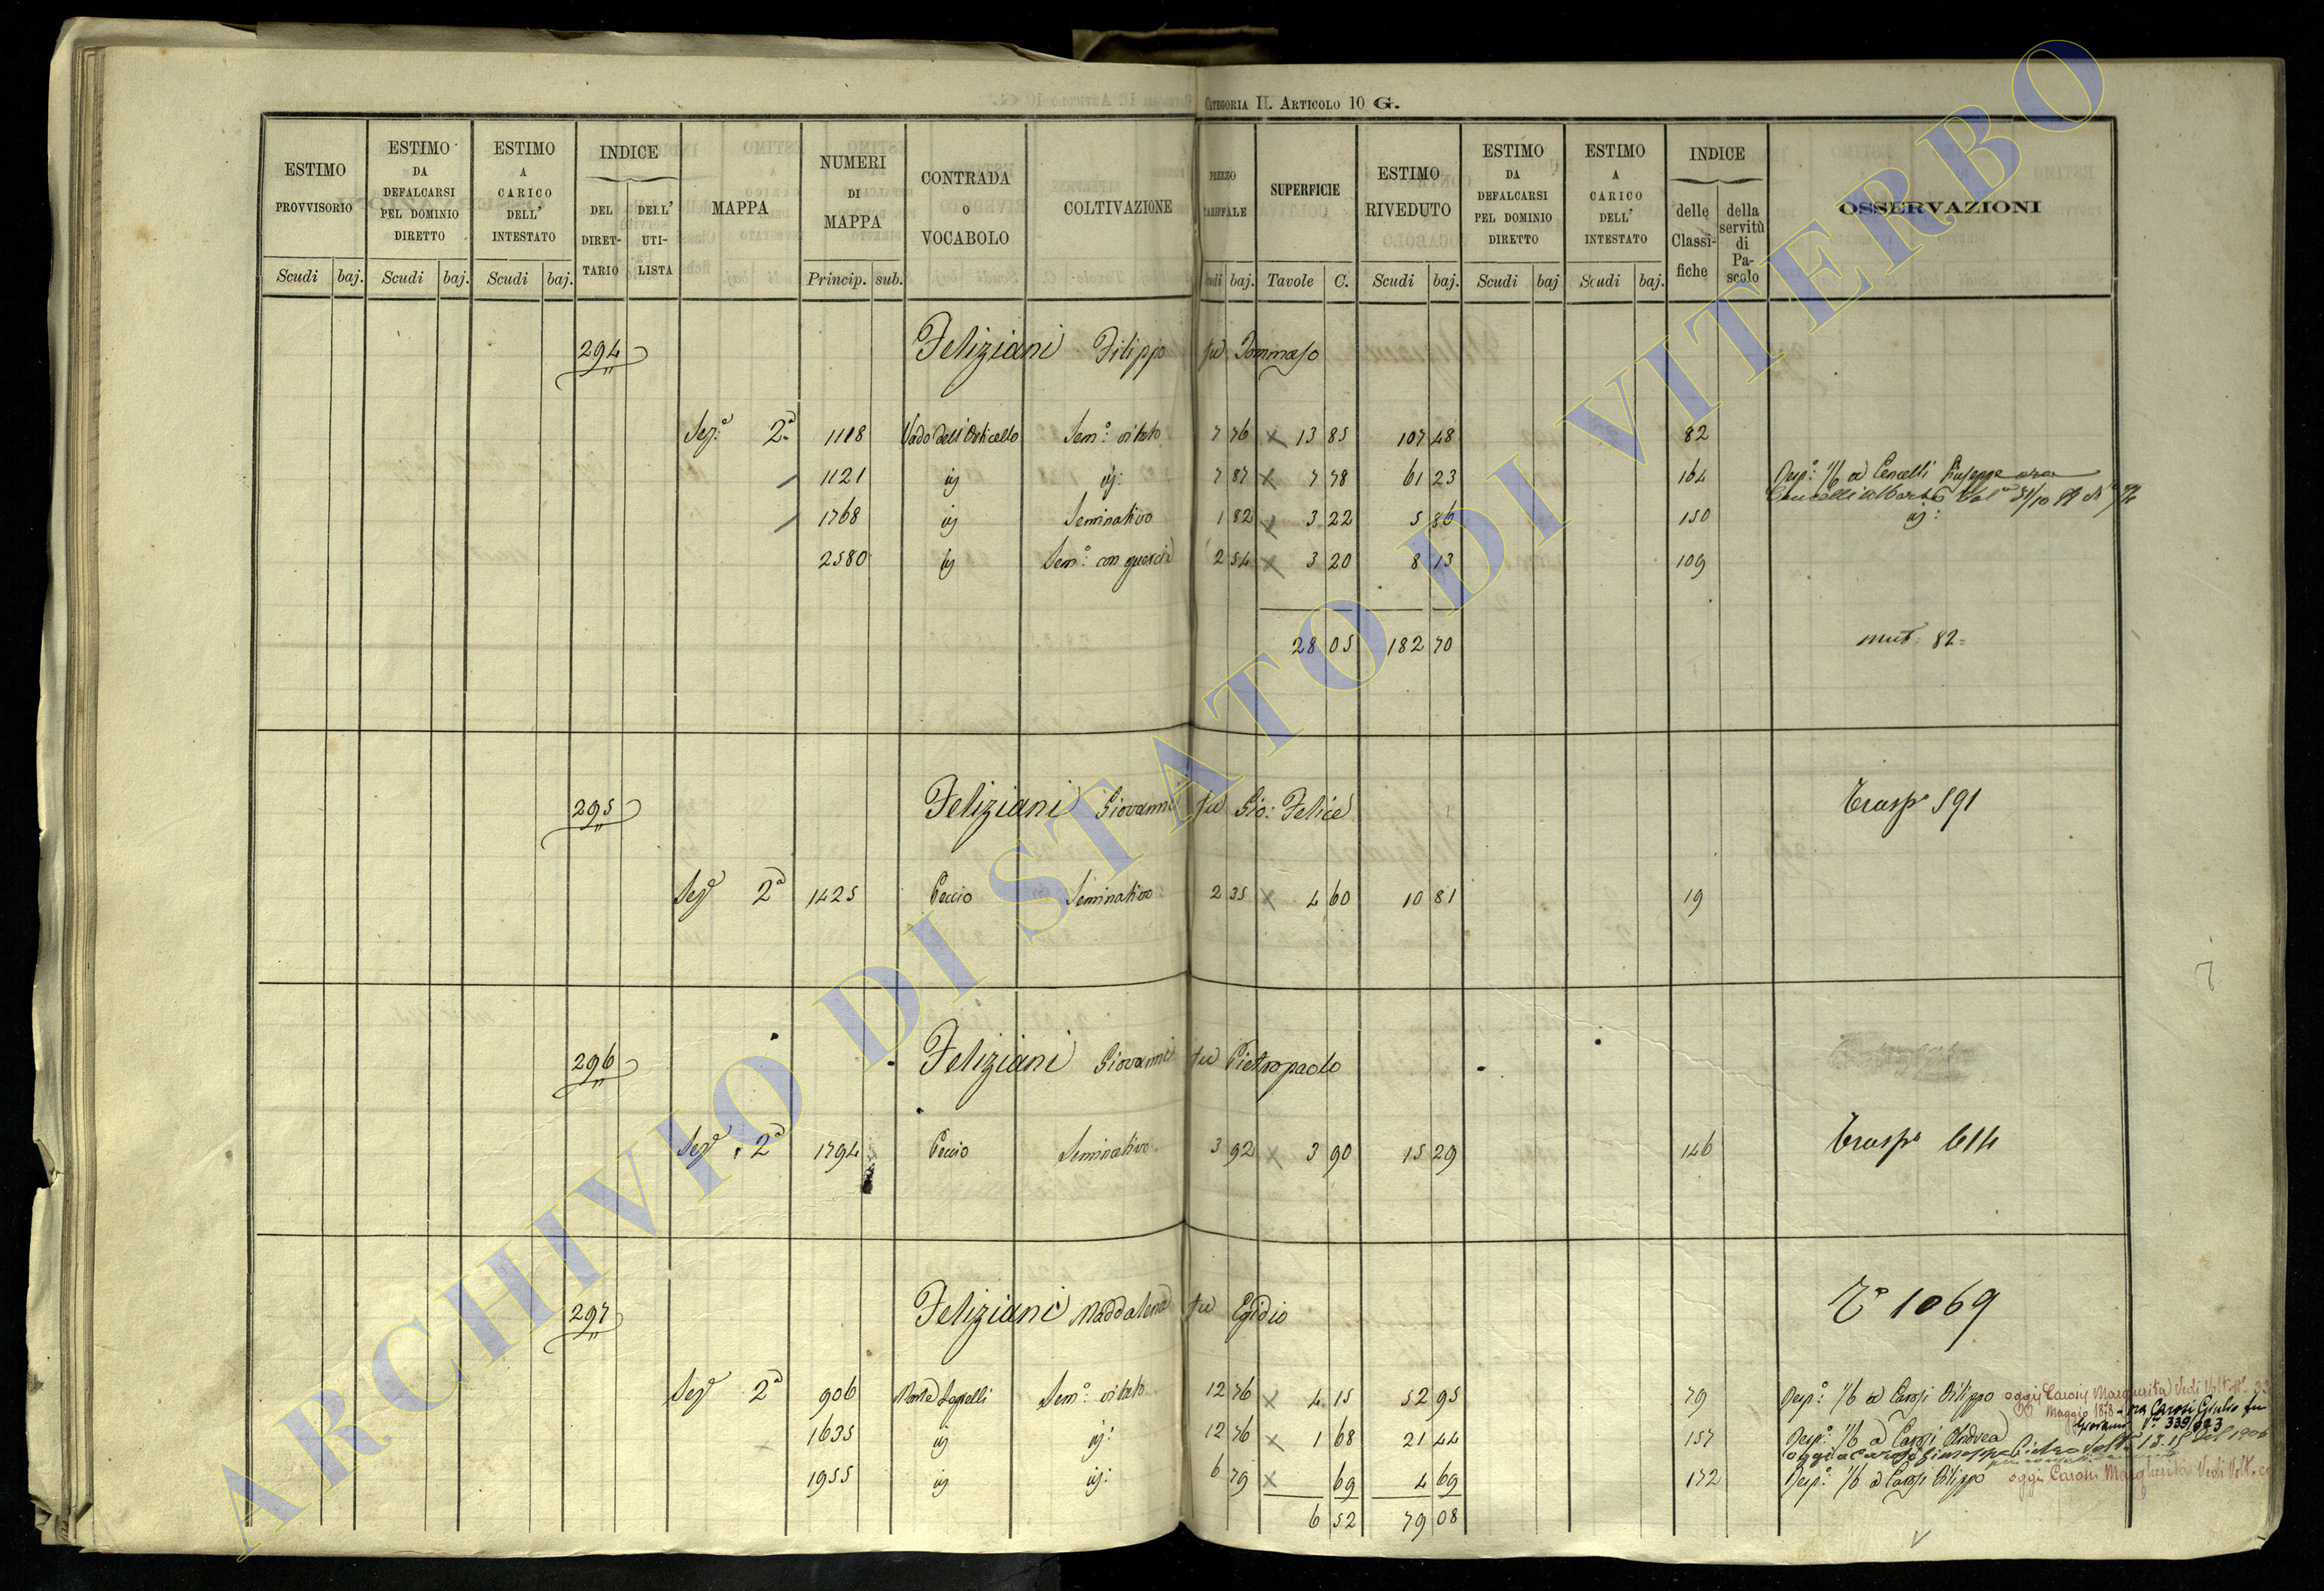 CATEGORIA II. ARTICOLO 10 G.
ESTIMO PROVVISORIO ESTIMO DA DEFALCARSI PEL DOMINIO DIRETTO ESTIMO A CARICO DELL' INTESTATO INDICE DEL DIRET-TARIO DELL' UTI-LISTA MAPPA NUMERI DI MAPPA CONTRADA O VOCABOLO COLTIVAZIONE PREZZO TARIFFALE SUPERFICIE ESTIMO RIVEDUTO ESTIMO DA DEFALCARSI PEL DOMINIO DIRETTO ESTIMO A CARICO DELL' INTESTATO INDICE delle Classi-fiche della servitù di Pa-scolo OSSERVAZIONI
Scudi baj. Scudi baj. Scudi baj. Princip. sub. baj. Tavole C. Scudi baj. Scudi baj Scudi baj.
294 Feliziani Filippo fu Tommaso
Sez.e 2a 1118 Vado dell'Orticello Sem.o vitato 7 76 x 13 85 107 48 82
1121 " 7 87 x 7 78 61 23 164 1/6 a Cencelli Giuseppe ora
Cencelli Alberto
1768 Seminativo 1 82 x 3 22 5 86 150
2580 Sem.o con querce 2 54 x 3 20 8 13 109
28 05 182 70 82
295 Feliziani Giovanni fu Gio: Felice Trasp.o 591
Sez.e 2a 1425 Peccio Seminativo 2 35 x 4 60 10 81 19
296 Feliziani Giovanni fu Pietropaolo
Sez.e 2a 1794 Peccio Seminativo 3 92 x 3 90 15 29 146 Trasp.o 614
297 Feliziani Maddalena fu Egidio T.o 1069
Sez.e 2a 906 Sem.o vitato 12 76 x 4 15 52 95 79 1/6 a Carosi Filippo oggi Carosi Margherita Vedi Volt.
Maggio ora Carosi Giulio fu
Giovanni 339/923
1635 12 76 x 1 68 21 44 157 1/6 a Carosi Andrea
oggi a Carosi Giuseppe 1906
1955 6 79 x 69 4 69 172 1/6 a Carosi Filippo oggi Carosi Margherita Vedi Volt.
6 52 79 08
ARCHIVIO DI STATO DI VITERBO